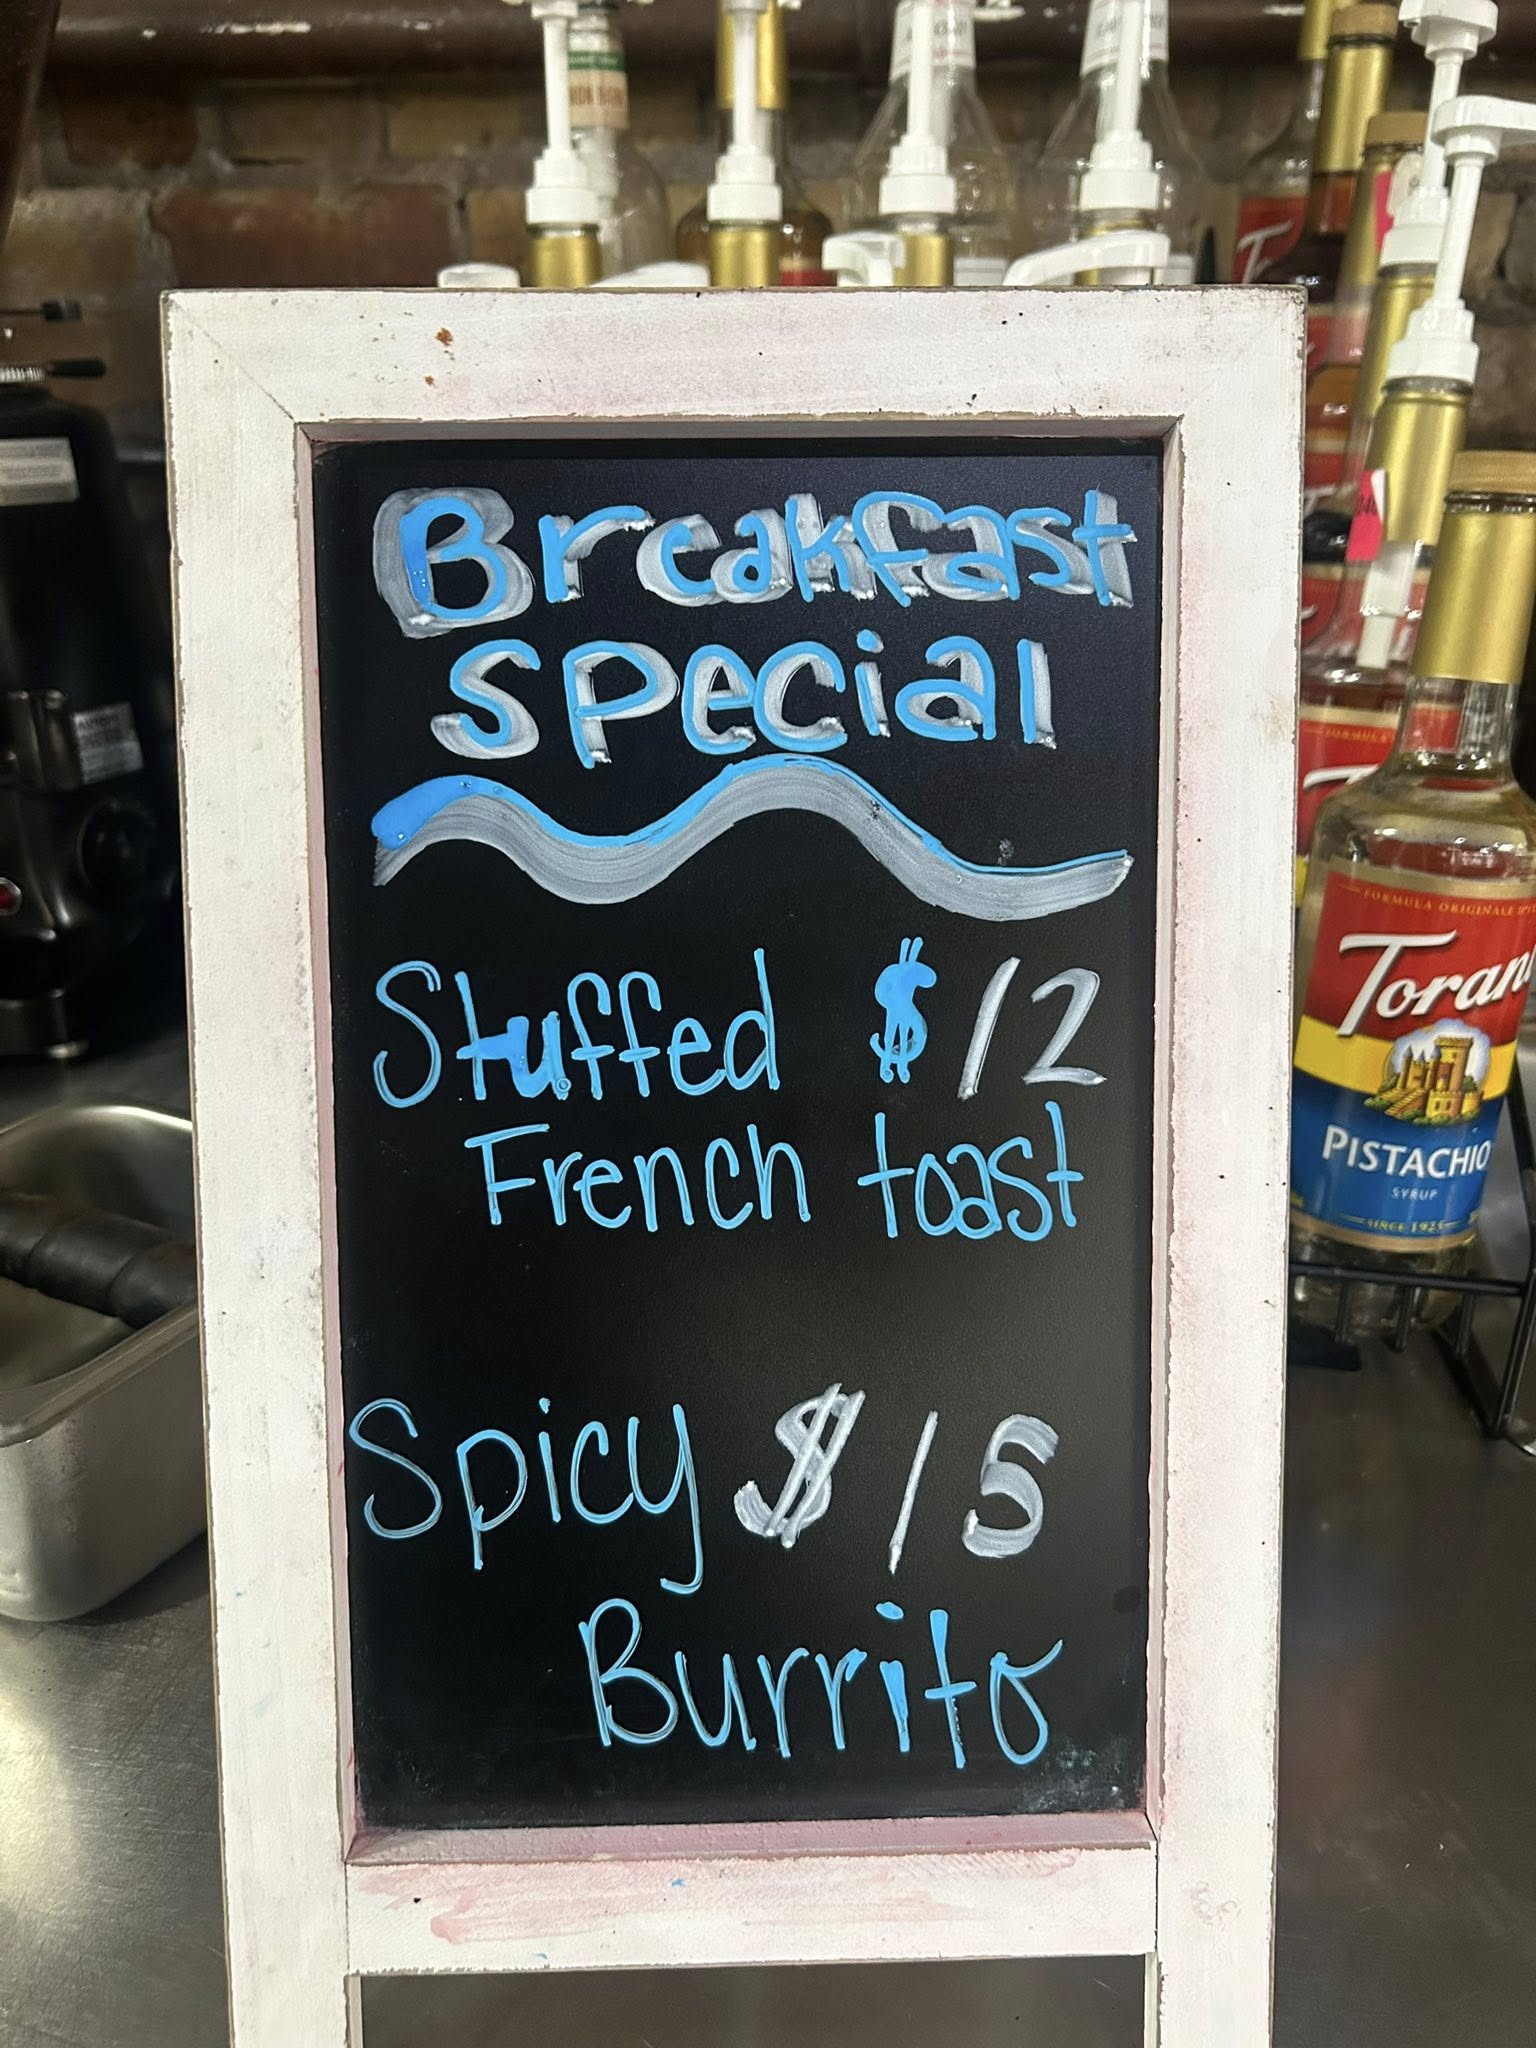 Breakfast
special
Stuffed $12
French toast
Spicy $15
Burrito
FORMULA ORIGINALE
Torani
PISTACHIO
SYRUP
SINCE 1925